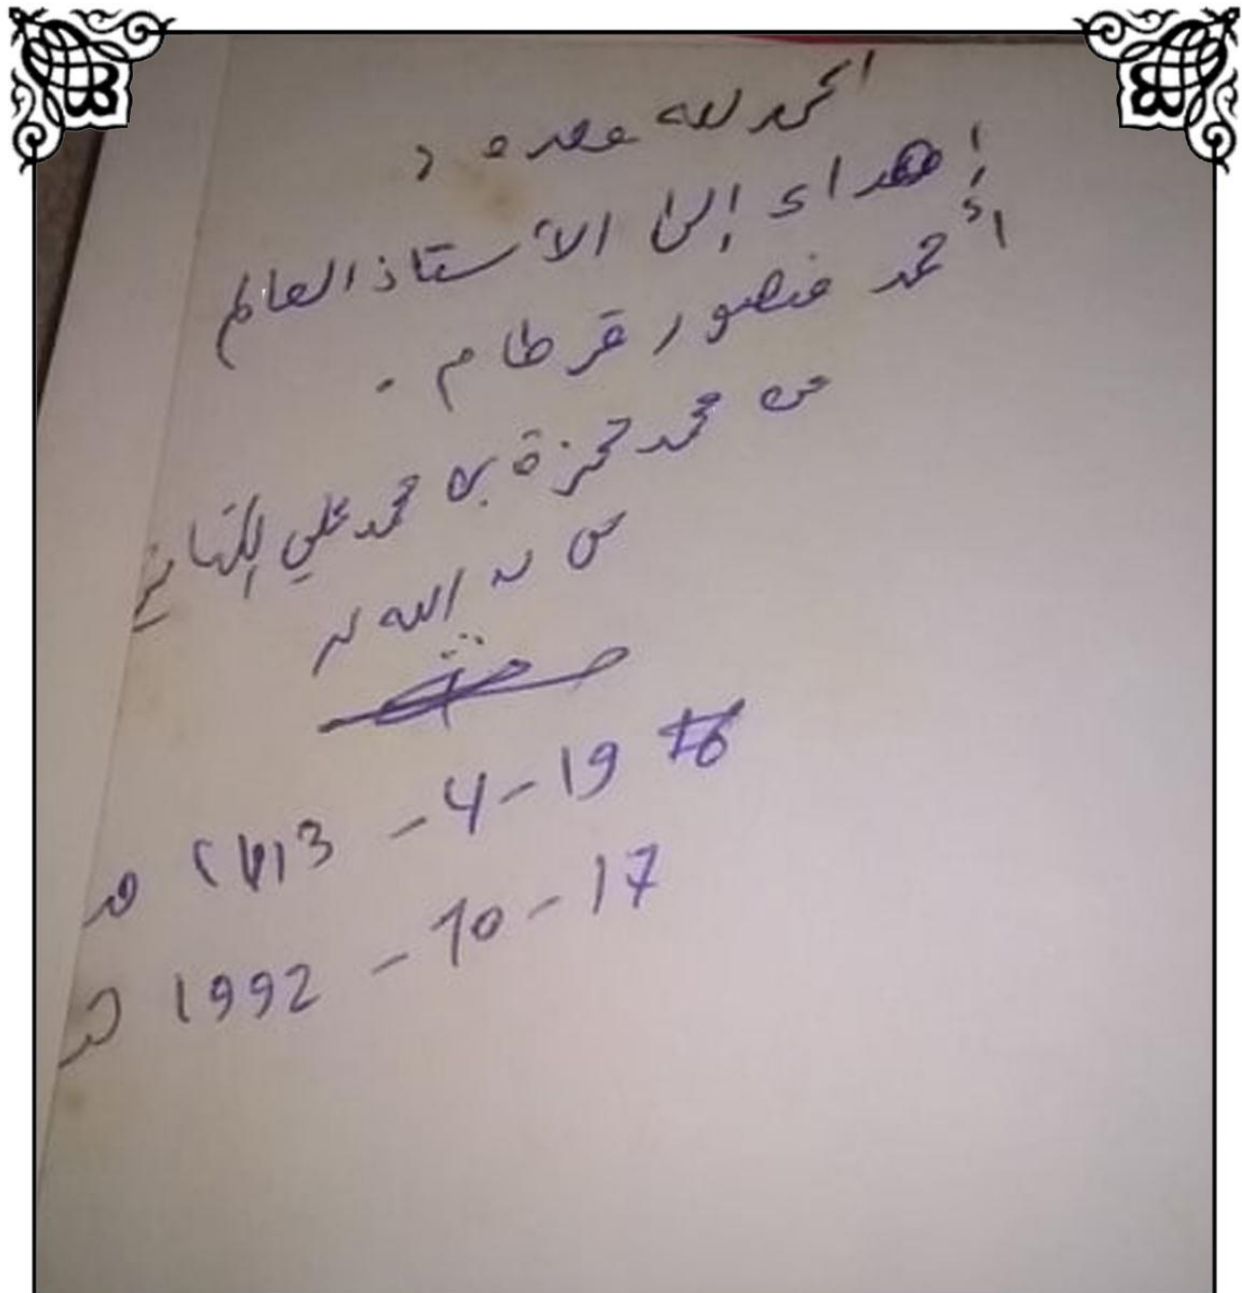 الحمد لله وحده ،
إهداء إلى الأستاذ العالم
أحمد منصور قرطام .
من محمد حمزة بن محمد علي الكتاني
الله
19-4-1413 هـ
17-10-1992 م